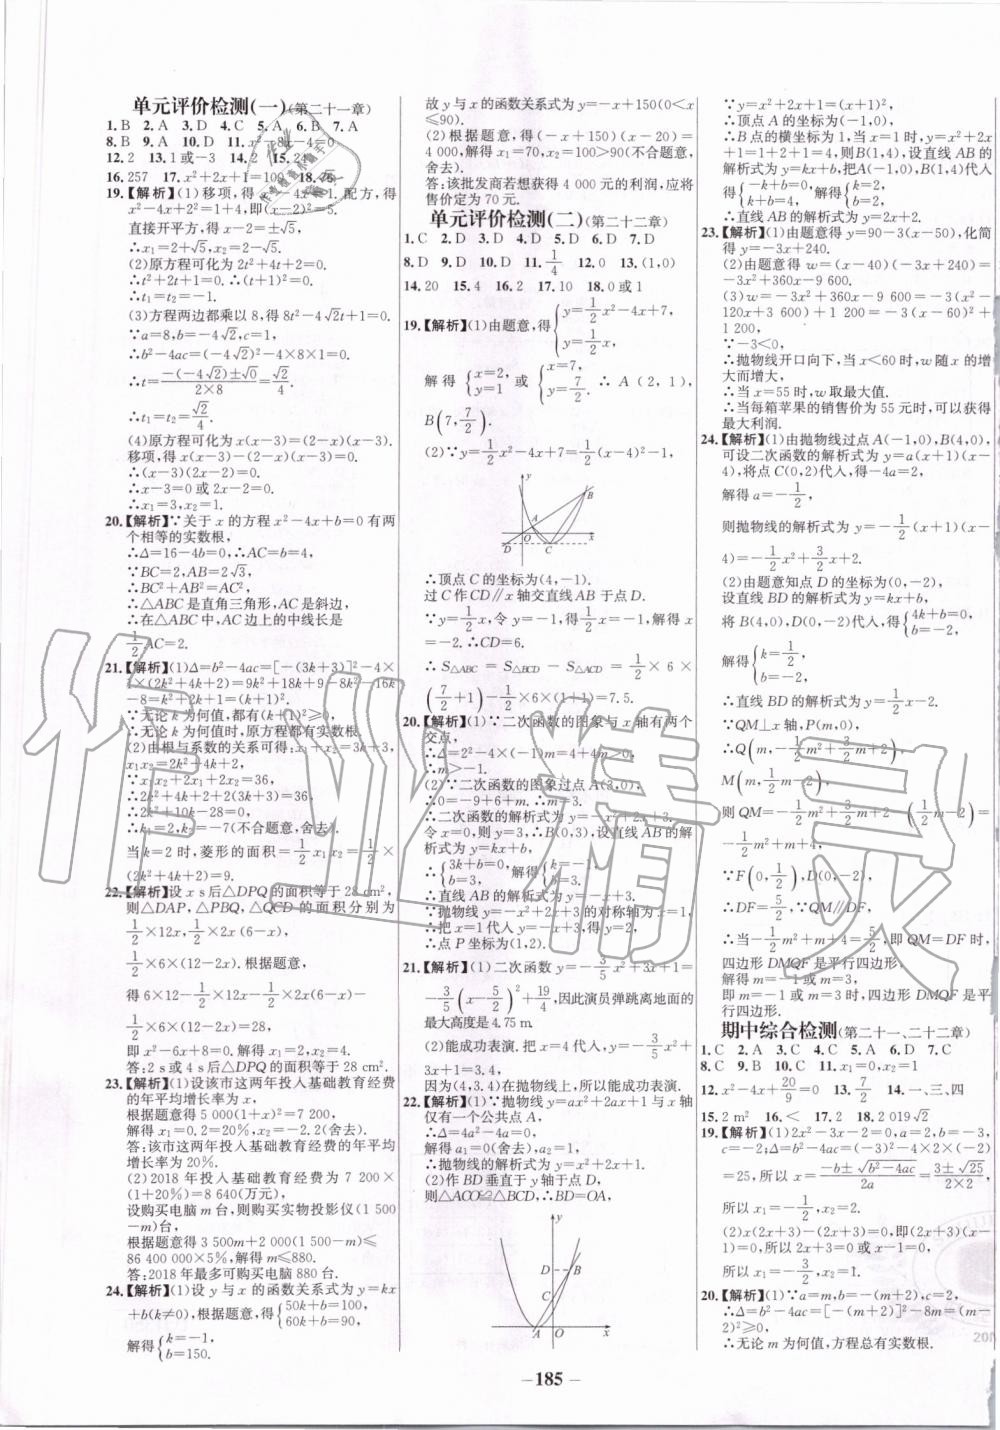 单元评价检测(一)(第二十一章)
1.B 2.A 3.D 4.C 5.A 6.B 7.A
8.B 9.A 10.D 11.x²-8x-4=0
12.2 13.1或-3 14.2 15.24
16.257 17.x²+2x+1=100 18.76
19.【解析】(1)移项,得x²-4x=1.配方,得
x²-4x+2²=1+4,即(x-2)²=5.
直接开平方,得x-2=±√5,
∴x₁=2+√5,x₂=2-√5.
(2)原方程可化为2t²+4t+2=0.
∴t²+2t+1=0.∴(t+1)²=0.
∴t₁=t₂=-1.
(3)方程两边都乘以8,得8t²-4√2t+1=0.
∵a=8,b=-4√2,c=1,
∴b²-4ac=(-4√2)²-4×8×1=0.
∴t=(-(-4√2)±√0)/(2×8)=√2/4.
∴t₁=t₂=√2/4.
(4)原方程可化为x(x-3)=(2-x)(x-3).
移项,得x(x-3)-(2-x)(x-3)=0.
∴(x-3)(2x-2)=0.
∴x-3=0或2x-2=0.
∴x₁=3,x₂=1.
20.【解析】∵关于x的方程x²-4x+b=0有两
个相等的实数根,
∴Δ=16-4b=0,∴AC=b=4.
∵BC=2,AB=2√3,
∴BC²+AB²=AC²,
∴△ABC是直角三角形,AC是斜边,
∴在△ABC中,AC边上的中线长是
1/2 AC=2.
21.【解析】(1)Δ=b²-4ac=[-(3k+3)]²-4×
1×(2k²+4k+2)=9k²+18k+9-8k²-16k
-8=k²+2k+1=(k+1)².
∵无论k为何值,都有(k+1)²≥0,
∴无论k为何值方程都有实数根.
(2)由根与系数的关系可得:x₁+x₂=3k+3,
x₁x₂=2k²+4k+2.
∵x₁x₂+2x₁+2x₂=36,
∴2k²+4k+2+2(3k+3)=36,
∴2k²+10k-28=0,
∴k₁=2,k₂=-7(不合题意,舍去).
当k=2时,菱形的面积=1/2 x₁x₂=1/2×
(2k²+4k+2)=9.
22.【解析】设x s后△DPQ的面积等于28 cm²,
则△DAP,△PBQ,△QCD的面积分别为
1/2×12x,1/2×2x(6-x),
1/2×6×(12-2x).根据题意,
得6×12-1/2×12x-1/2×2x(6-x)-
1/2×6×(12-2x)=28,
即x²-6x+8=0.解得x₁=2,x₂=4.
答:2 s或4 s后△DPQ的面积等于28 cm².
23.【解析】(1)设该市这两年投入基础教育经费
的年平均增长率为x,
根据题意得5 000(1+x)²=7 200,
解得x₁=0.2=20%,x₂=-2.2(舍去).
答:该市这两年投入基础教育经费的年平均
增长率为20%.
(2)2018年投入基础教育经费为7 200×
(1+20%)=8 640(万元),
设购买电脑m台,则购买实物投影仪(1 500
-m)台,
根据题意得3 500m+2 000(1 500-m)≤
86 400 000×5%,解得m≤880.
答:2018年最多可购买电脑880台.
24.【解析】(1)设y与x的函数关系式为y=kx
+b(k≠0),根据题意,得{50k+b=100,60k+b=90,
解得{k=-1,b=150.
故y与x的函数关系式为y=-x+150(0<x
≤90).
(2)根据题意,得(-x+150)(x-20)=
4 000,解得x₁=70,x₂=100>90(不合题意,
舍去).
答:该批发商若想获得4 000元的利润,应将
售价定为70元.
单元评价检测(二)(第二十二章)
1.C 2.D 3.D 4.D 5.D 6.D 7.D
8.D 9.D 10.D 11.1/4 12.0 13.(1,0)
14.20 15.4 16.2 17.10 18.0或1
19.【解析】(1)由题意,得{y=1/2x²-4x+7,y=1/2x,
解得{x=2,y=1 或{x=7,y=7/2. ∴A(2,1),
B(7,7/2).
(2)∵y=1/2x²-4x+7=1/2(x-4)²-1,
y B A O x D C
∴顶点C的坐标为(4,-1).
过C作CD∥x轴交直线AB于点D.
∵y=1/2x,令y=-1,得1/2x=-1,解得x=
-2,∴CD=6.
∴S△ABC=S△BCD-S△ACD=1/2×6×
(7/2+1)-1/2×6×(1+1)=7.5.
20.【解析】(1)∵二次函数的图象与x轴有两个
交点,
∴Δ=2²-4×(-1)m=4+4m>0,
∴m>-1.
(2)∵二次函数的图象过点A(3,0),
∴0=-9+6+m.∴m=3.
∴二次函数的解析式为y=-x²+2x+3.
令x=0,则y=3,∴B(0,3).设直线AB的解
析式为y=kx+b,
∴{3k+b=0,b=3, 解得{k=-1,b=3.
∴直线AB的解析式为y=-x+3.
∵抛物线y=-x²+2x+3的对称轴为x=1,
∴把x=1代入y=-x+3,得y=2,
∴点P坐标为(1,2).
21.【解析】(1)二次函数y=-3/5x²+3x+1=
-3/5(x-5/2)²+19/4,因此演员弹跳离地面的
最大高度是4.75 m.
(2)能成功表演.把x=4代入,y=-3/5x²+
3x+1=3.4,
因为(4,3.4)在抛物线上,所以能成功表演.
22.【解析】(1)∵抛物线y=ax²+2ax+1与x轴
仅有一个公共点A,
∴Δ=4a²-4a=0,
解得a₁=0(舍去),a₂=1.
∴抛物线的解析式为y=x²+2x+1.
(2)作BD垂直于y轴于点D,
则△ACO≌△BCD,∴BD=OA,
y D B C A O x
∵y=x²+2x+1=(x+1)²,
∴顶点A的坐标为(-1,0),
∴B点的横坐标为1,当x=1时,y=x²+2x
+1=1+2+1=4,则B(1,4),设直线AB的
解析式为y=kx+b,把A(-1,0),B(1,4)代入,
得{-k+b=0,k+b=4, 解得{k=2,b=2,
∴直线AB的解析式为y=2x+2.
23.【解析】(1)由题意得y=90-3(x-50),化简
得y=-3x+240.
(2)由题意得w=(x-40)(-3x+240)=
-3x²+360x-9 600.
(3)w=-3x²+360x-9 600=-3(x²-
120x+3 600)+1 200=-3(x-60)²+
1 200,
∵-3<0,
∴抛物线开口向下,当x<60时,w随x的增
大而增大,
∴当x=55时,w取最大值.
∴当每箱苹果的销售价为55元时,可以获得
最大利润.
24.【解析】(1)由抛物线过点A(-1,0),B(4,0),
可设二次函数的解析式为y=a(x+1)(x-
4),将点C(0,2)代入,得-4a=2,
解得a=-1/2,
则抛物线的解析式为y=-1/2(x+1)(x-
4)=-1/2x²+3/2x+2.
(2)由题意知点D的坐标为(0,-2),
设直线BD的解析式为y=kx+b,
将B(4,0),D(0,-2)代入,得{4k+b=0,b=-2,
解得{k=1/2,b=-2.
∴直线BD的解析式为y=1/2x-2.
∵QM⊥x轴,P(m,0),
∴Q(m,-1/2m²+3/2m+2),
M(m,1/2m-2),
则QM=-1/2m²+3/2m+2-(1/2m-2)=
-1/2m²+m+4.
∵F(0,1/2),D(0,-2),
∴DF=5/2,∵QM∥DF,
∴当-1/2m²+m+4=5/2,即QM=DF时,
四边形DMQF是平行四边形.
解得m=-1或m=3,
即m=-1或m=3时,四边形DMQF是平
行四边形.
期中综合检测(第二十一、二十二章)
1.C 2.A 3.C 4.C 5.A 6.D 7.C
8.C 9.C 10.C 11.x₁=0,x₂=1
12.x²-4x+20/9=0 13.7/2 14.一、三、四
15.2 m² 16.< 17.2 18.2 019√2
19.【解析】(1)2x²-3x-2=0,a=2,b=-3,
c=-2;Δ=b²-4ac=(-3)²-4×2×(-2)
=25,所以x=(-b±√(b²-4ac))/2a=(3±√25)/(2×2),
所以x₁=-1/2,x₂=2.
(2)x(2x+3)-(2x+3)=0,即(2x+3)(x-
1)=0,所以2x+3=0或x-1=0.
所以x₁=-3/2,x₂=1.
20.【解析】(1)∵a=m,b=-(m+2),c=2,
∴Δ=b²-4ac=[-(m+2)]²-8m=(m-
2)²≥0,
∴无论m为何值,方程总有实数根.
-185-
作业精灵